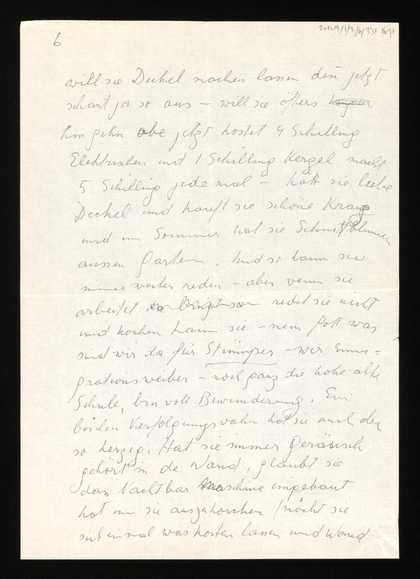 6
will sie Deckel machen lassen den jetzt
schaut ja so aus – will sie öfters
hin gehn aber jetzt kostet 4 Schilling
Elektrischen und 1 Schilling Kerzel macht
5 Schilling jede mal – hätt sie lieber
Deckel und kauft sie schöne Kranz
und im Sommer hat sie Schnittblumen
aussen Garten. Und so kann sie
immer weiter reden – aber wenn sie
arbeitet redet sie nicht
und kochen kann sie – mein Gott was
sind wir da für Stümper – wir Emi-
grationsweiber – noch ganz die hohe alte
Schule, bin voll Bewunderung. Ein
bissen Verfolgungswahn hat sie auch der
so herzig. Hat sie immer Geräusch
gehört in de Wand, glaubt sie
dass Nachtbar Maschine eingebaut
hat um sie auszuhorchen
lassen und Wand